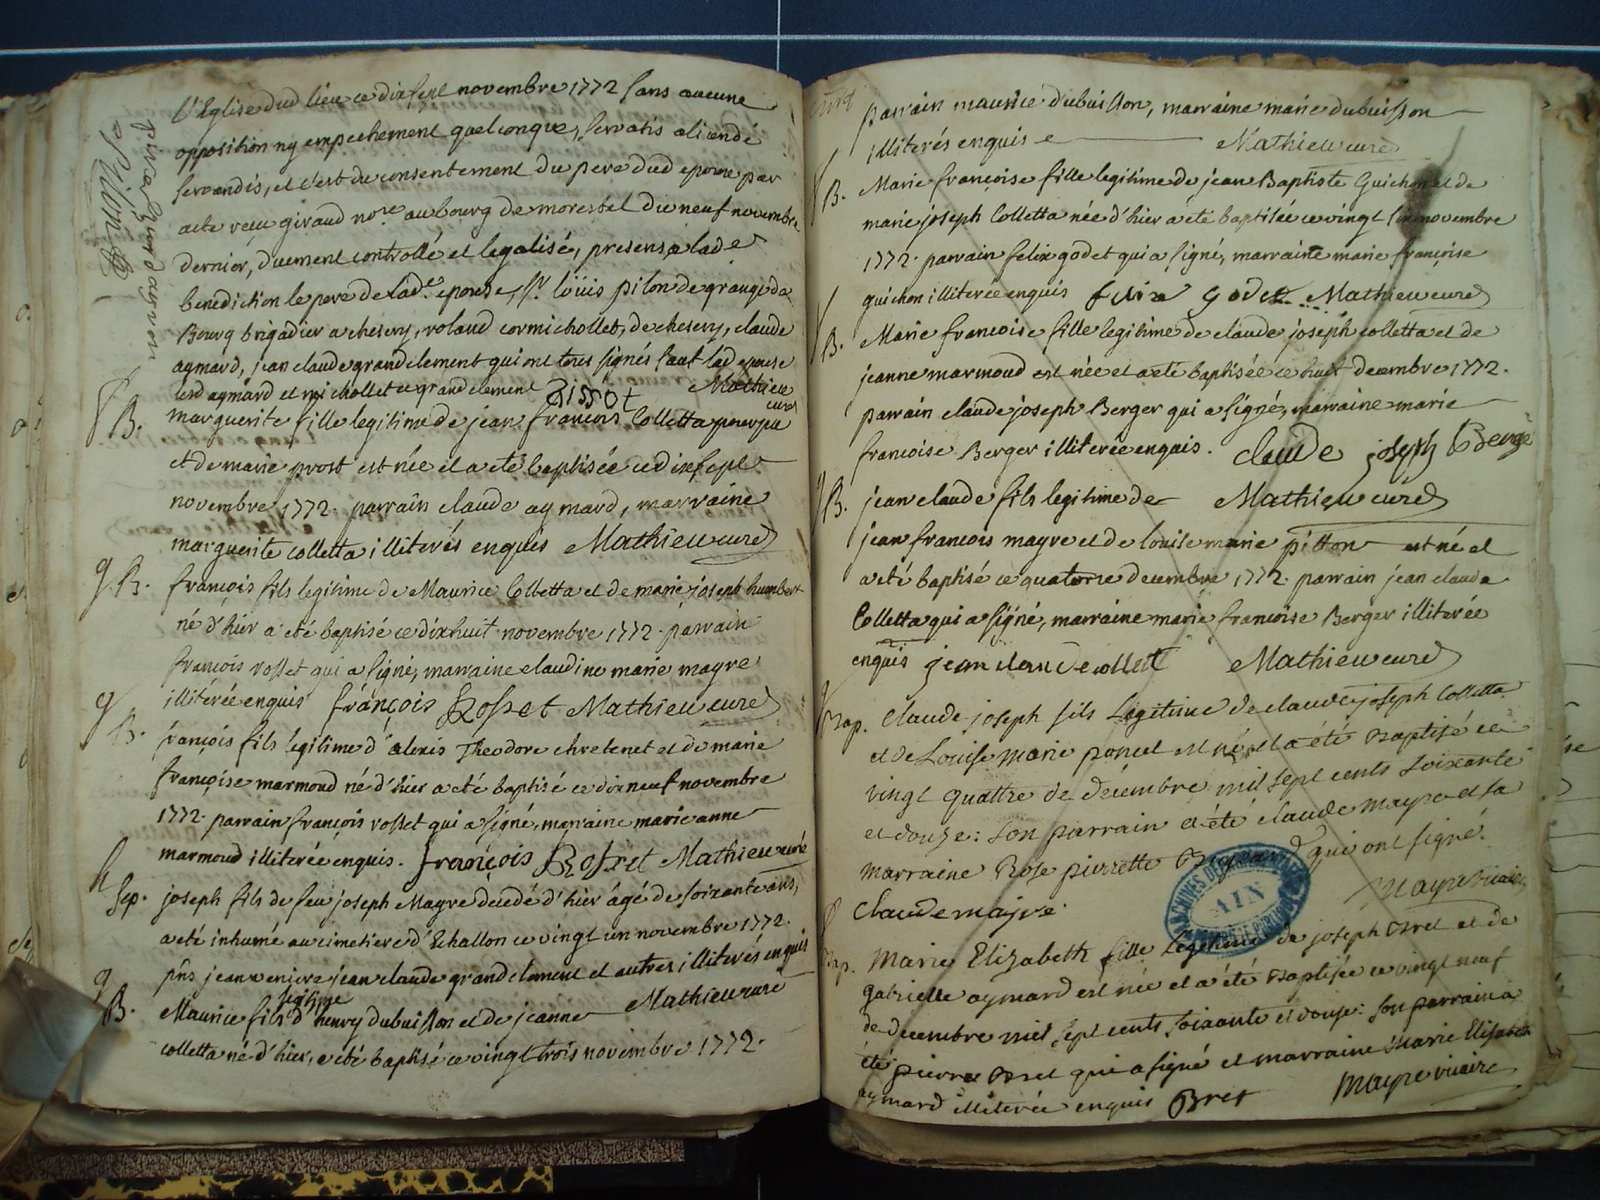 l'Eglise dud lieu ce dix sept novembre 1772 sans aucune
opposition ny empechement quelconque, servatis aliendé
servandis, et c'est du consentement du pere dud epoux par
acte reçu giraud nore au bourg de morestel du neuf novembre
dernier, duement controllé et legalisé, presens a lade
benediction le pere de lade epouse, sr loüis pilon de
Bourg brigadier a chesery, roland cormichollet, de chesery, claude
aymard, jean claude grandclement qui ont tous signés sauf lad epouse
led aymard et michollet ce grandclement Mathieu
curé
Pilon
B. marguerite fille legitime de jean françois Colletta
et de marie prost est née et a eté baptisée ce dix sept
novembre 1772. parrain claude aymard, marraine
marguerite colletta illiterés enquis Mathieu curé
g. B. françois fils legitime de Maurice Colletta et de marie joseph humbert
né d'hier a eté baptisé ce dix huit novembre 1772. parrain
françois rosset qui a signé, marraine claudine marie mayre
illitérée enquis françois Rosset Mathieu curé
g B. françois fils legitime d'alexis Theodore chretenet et de marie
françoise marmoud né d'hier a eté baptisé ce dix neuf novembre
1772. parrain françois rosset qui a signé, marraine marie anne
marmoud illiterée enquis. françois Rosset Mathieu curé
Sep. joseph fils de feu joseph Mayre decedé d'hier âgé de soixante ans,
a eté inhumé au cimetiere d'Echallon ce vingt un novembre 1772.
pns jean jean claude grandclement et autres illiterés enquis
g B. Maurice fils legitime d'henry dubuisson et de jeanne Mathieu curé
colletta né d'hier, a eté baptisé ce vingt trois novembre 1772.
parrain maurice dubuisson, marraine marie dubuisson
illiterés enquis Mathieu curé
B. Marie françoise fille legitime de jean Baptiste Guichon et de
marie joseph Colletta née d'hier a été baptisée ce vingt six novembre
1772. parrain felix godet qui a signé, marrainte marie françoise
guichon illiterée enquis felix godet Mathieu curé
B. Marie francoise fille legitime de claude joseph colletta et de
jeanne marmoud est née et a eté baptisée ce huit decembre 1772.
parrain claude joseph Berger qui a signé, marraine marie
francoise Berger illiterée enquis. claude joseph Berge
B. jean claude fils legitime de Mathieu curé
jean francois mayre et de louise marie pitton est né et
a eté baptisé ce quatorze decembre 1772. parrain jean claude
Colletta qui a signé, marraine marie francoise Berger illiterée
enquis jean claude collett Mathieu curé
Bap. Claude joseph fils Legitime de claude joseph Colletta
et de Louise Marie poncet est né et a été Baptisé ce
vingt quattre de décembre mil sept cents soixante
et douze: son parrain a été claude mayre et sa
marraine Rose pierrette qui ont signé.
Claude majre Mayre vicaire
Bap. Marie Elizabeth fille Legitime de joseph Bret et de
gabrielle aymard est née et a été Baptisée ce vingt neuf
de decembre mil sept cents soixante et douze: son parrain a
été pierre Bret qui a signé et marraine Marie Elisabeth
aymard illiterée enquis Bret Mayre vicaire
ARCHIVES
AIN